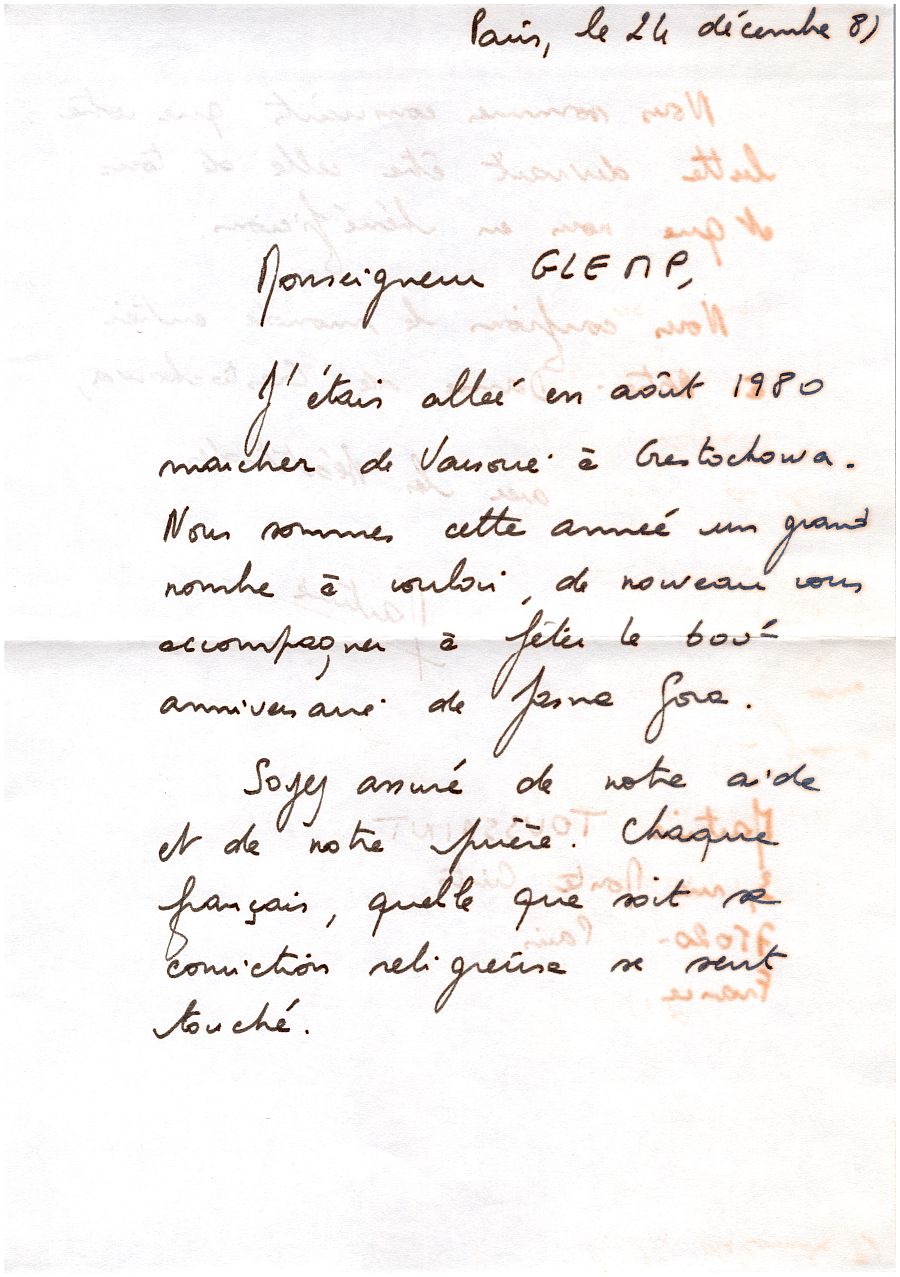 Paris, le 24 décembre 81
Monseigneur GLEMP,
J'étais alleé en août 1980
marcher de Varsovie à Crestochowa.
Nous sommes cette anneé un grand
nombre à vouloir, de nouveau vous
accompagner à fêter le 600è
anniversaire de Jasna Gora.
Soyez assuré de notre aide
et de notre prière. Chaque
français, quelle que soit sa
conviction religieuse se sent
touché.